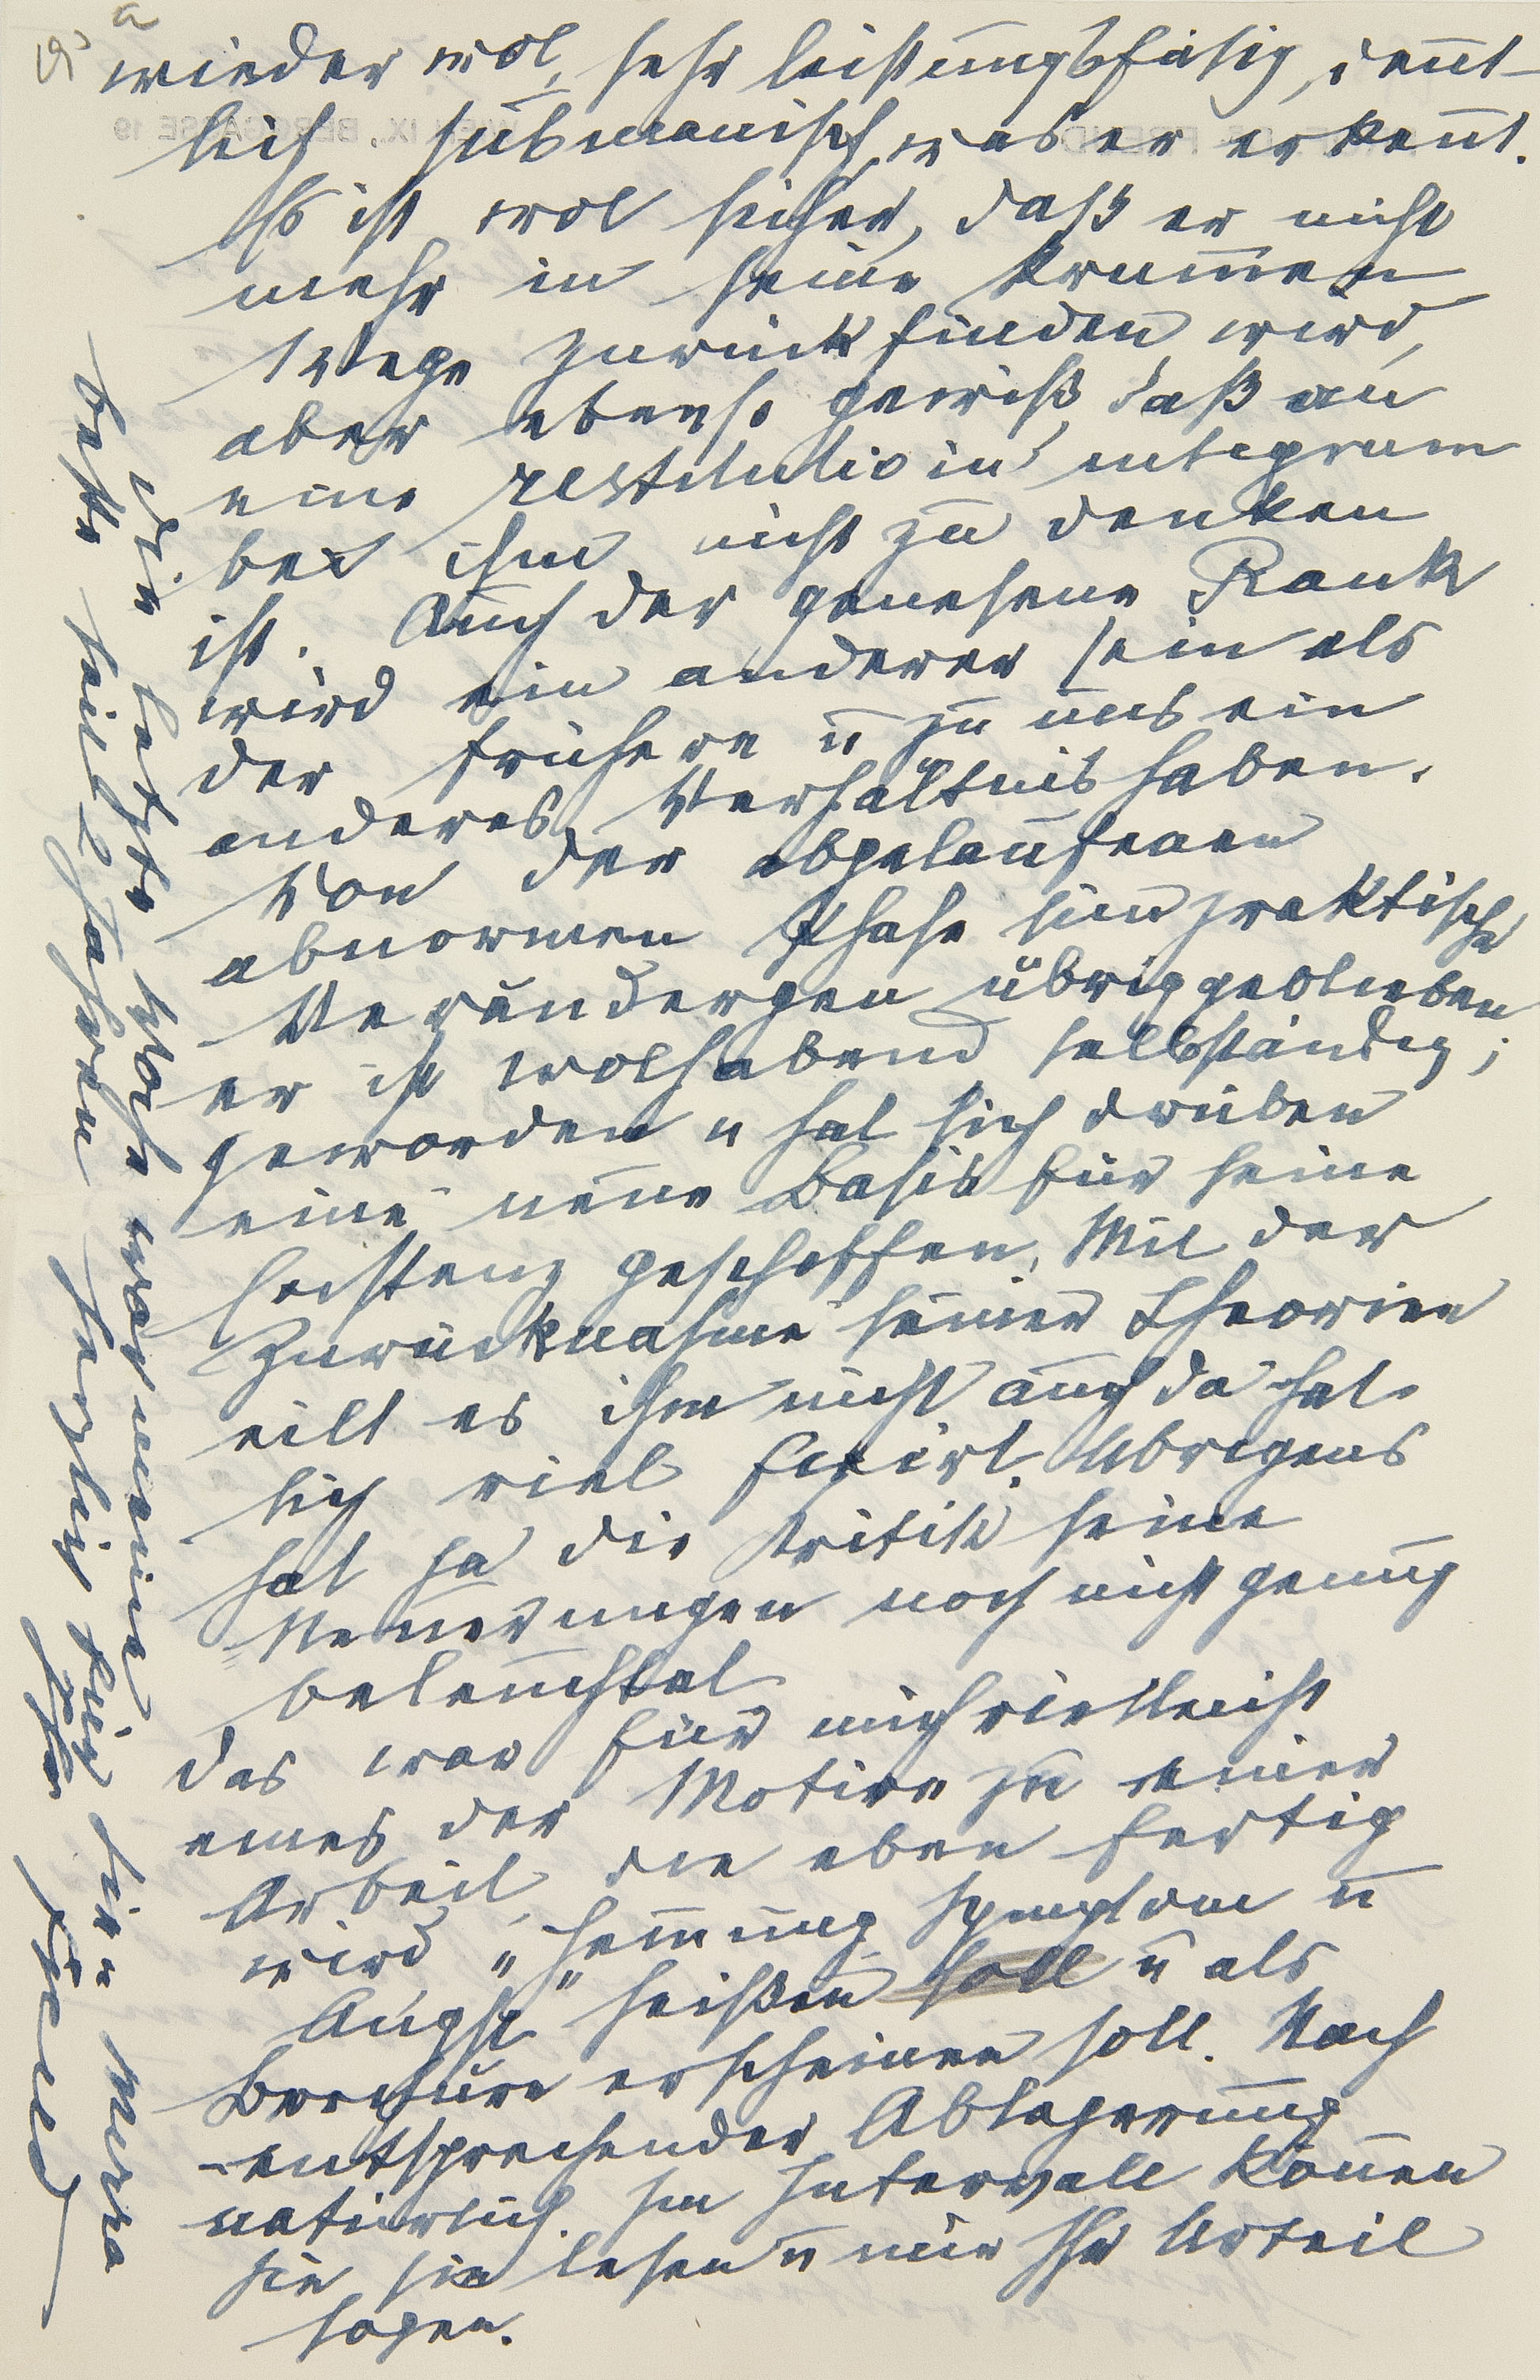 wieder wol, sehr leistungsfähig, deutl-
lich submanisch, was er erkennt.
Es ist wol sicher, daß er nicht
mehr in seine krummen
Wege zurückfinden wird,
aber ebenso gewiß, daß an
eine restitutio in integrum
bei ihm nicht zu denken
ist. Auch der genesene Rank
wird ein anderer sein als
der frühere u zu uns ein
anderes Verhältnis haben.
Von der abgelaufenen
abnormen Phase sind praktische
Verändergen übriggeblieben
er ist wolhabend selbständig;
geworden u hat sich drüben
eine neue Basis für seine
Existenz geschaffen. Mit der
Zurücknahme seiner Theorien
eilt es ihm nicht auch da hat
sich viel fixirt. Übrigens
hat ja die Kritik seine
Neuerungen noch nicht genug
beleuchtet.
das war für mich vielleicht
eines der Motive zu einer
Arbeit, die eben fertig
wird, „Hemmung Symptom u
Angst" heißen soll u als
Broschüre erscheinen soll. Nach
entsprechender Ablagerung
natürlich. Im Intervall können
Sie sie lesen u mir Ihr Urteil
sagen.
Die letzte Woche war meine
beste seit 2 Jahren. Herzlich für Sie u Mirra
Ihr
Freud